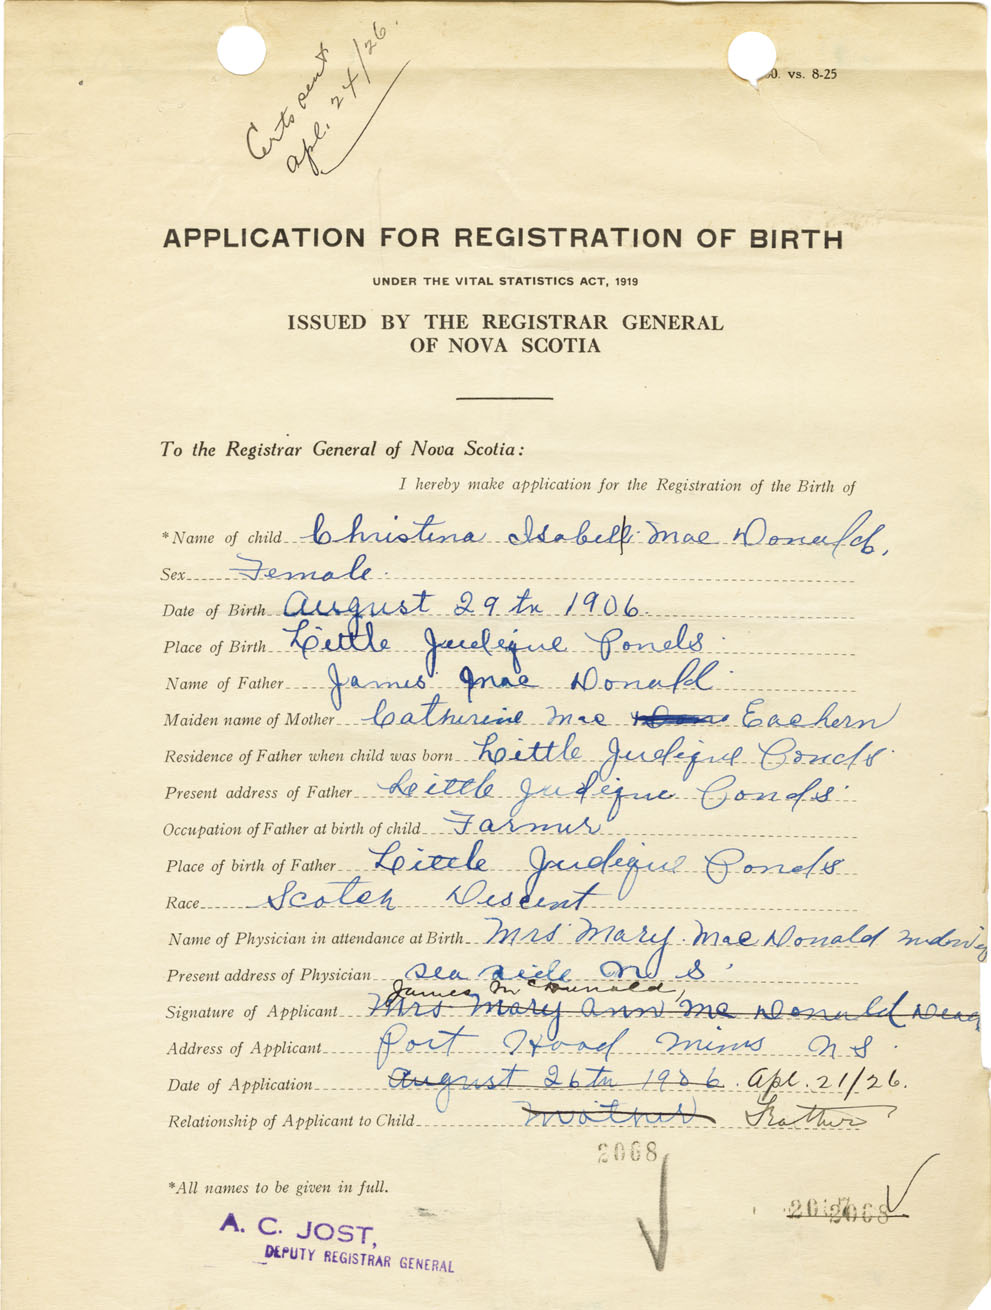 Certs sent
apl. 24/26.
0. vs. 8-25
APPLICATION FOR REGISTRATION OF BIRTH
UNDER THE VITAL STATISTICS ACT, 1919
ISSUED BY THE REGISTRAR GENERAL
OF NOVA SCOTIA
To the Registrar General of Nova Scotia:
I hereby make application for the Registration of the Birth of
*Name of child Christina Isabell Mac Donald.
Sex Female
Date of Birth August 29th 1906
Place of Birth Little Judique Ponds
Name of Father James Mac Donald
Maiden name of Mother Catherine Mac Eachern
Residence of Father when child was born Little Judique Ponds
Present address of Father Little Judique Ponds
Occupation of Father at birth of child Farmer
Place of birth of Father Little Judique Ponds
Race Scotch Descent
Name of Physician in attendance at Birth Mrs Mary Mac Donald midwife
Present address of Physician Sea side N S
James McDonald,
Signature of Applicant Mrs Mary Ann Mc Donald
Address of Applicant Port Hood Mines N S.
Date of Application August 26th 1926. Apl. 21/26.
Relationship of Applicant to Child Mother Father
2068
*All names to be given in full.
2067 2068
A. C. JOST,
DEPUTY REGISTRAR GENERAL